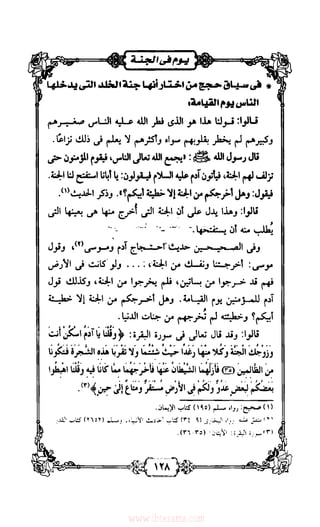 يوم في الجنة
* في سياق حجج من اختار أنها جنة الخلد التي يدخلها
الناس يوم القيامة:
قالوا: قولنا هذا هو الذي فطر الله عليه الناس صغيرهم
وكبيرهم لم يخطر بقلوبهم سواه وأكثرهم لا يعلم في ذلك نزاعًا.
قال رسول الله ﷺ: «يجمع الله تعالى الناس، فيقوم المؤمنون حتى
تزلف لهم الجنة، فيأتون آدم عليه السلام فيقولون: يا أبانا استفتح لنا الجنة.
فيقول: وهل أخرجكم من الجنة إلا خطيئة أبيكم؟». وذكر الحديث(١).
قالوا: وهذا يدل على أن الجنة التي أُخرج منها هي بعينها التي
يُطلب منه أن يستفتحها.
وفي الصحيحين حديث احتجاج آدم وموسى(٢)، وقول
موسى: أخرجتنا ونفسك من الجنة، ... ولو كانت في الأرض
فهم قد خرجوا من بساتين، فلم يخرجوا من الجنة، وكذلك قول
آدم للمؤمنين يوم القيامة. وهل أخرجكم من الجنة إلا خطيئة
أبيكم؟ وخطيئته لم تُخرجهم من جنات الدنيا.
قالوا: وقد قال تعالى في سورة البقرة: ﴿وَقُلْنَا يَا آدَمُ اسْكُنْ أَنتَ
وَزَوْجُكَ الْجَنَّةَ وَكُلا مِنْهَا رَغَدًا حَيْثُ شِئْتُمَا وَلا تَقْرَبَا هَذِهِ الشَّجَرَةَ فَتَكُونَا
مِنَ الظَّالِمِينَ (٣٥) فَأَزَلَّهُمَا الشَّيْطَانُ عَنْهَا فَأَخْرَجَهُمَا مِمَّا كَانَا فِيهِ وَقُلْنَا اهْبِطُوا
بَعْضُكُمْ لِبَعْضٍ عَدُوٌّ وَلَكُمْ فِي الأَرْضِ مُسْتَقَرٌّ وَمَتَاعٌ إِلَى حِينٍ﴾(٣).
(١) صحيح: رواه مسلم (١٩٥) كتاب الإيمان.
(٢) متفق عليه: رواه البخاري (٣٤٠٩) كتاب أحاديث الأنبياء، ومسلم (٢٦٥٢) كتاب القدر.
(٣) سورة البقرة: الآيتان: (٣٥-٣٦).
١٢٨
www.ibtesama.com